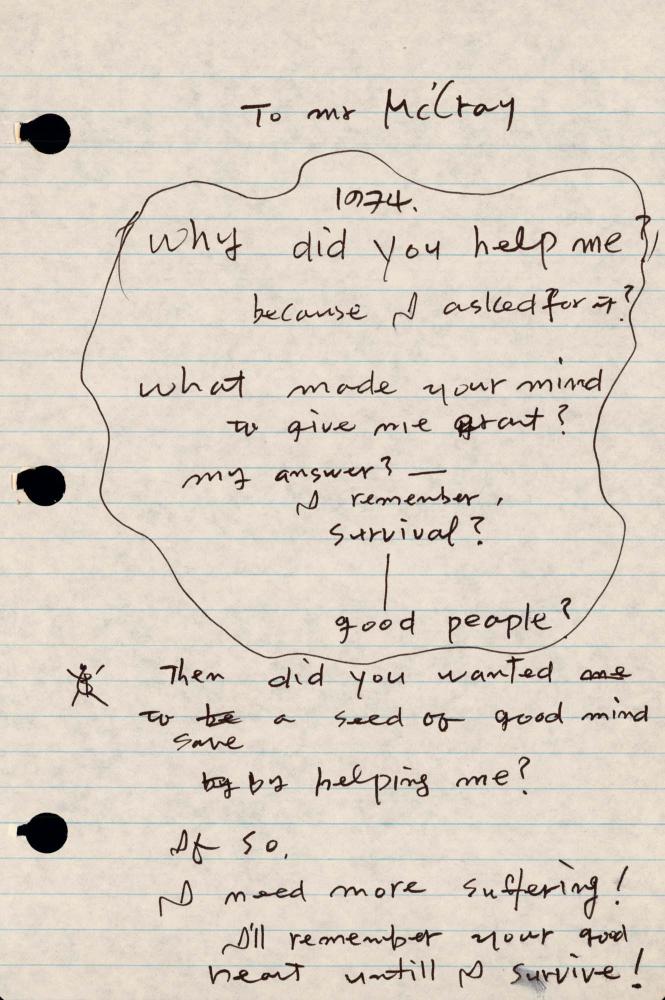 To mr McCray
1974.
Why did you help me?
because I asked for it?
what made your mind
to give me grant?
my answer? —
I remember,
survival?
good peaple?
Then did you wanted me
to be a seed of good mind
save
by by helping me?
If so,
I need more suffering!
I'll remember your good
heart untill I survive!